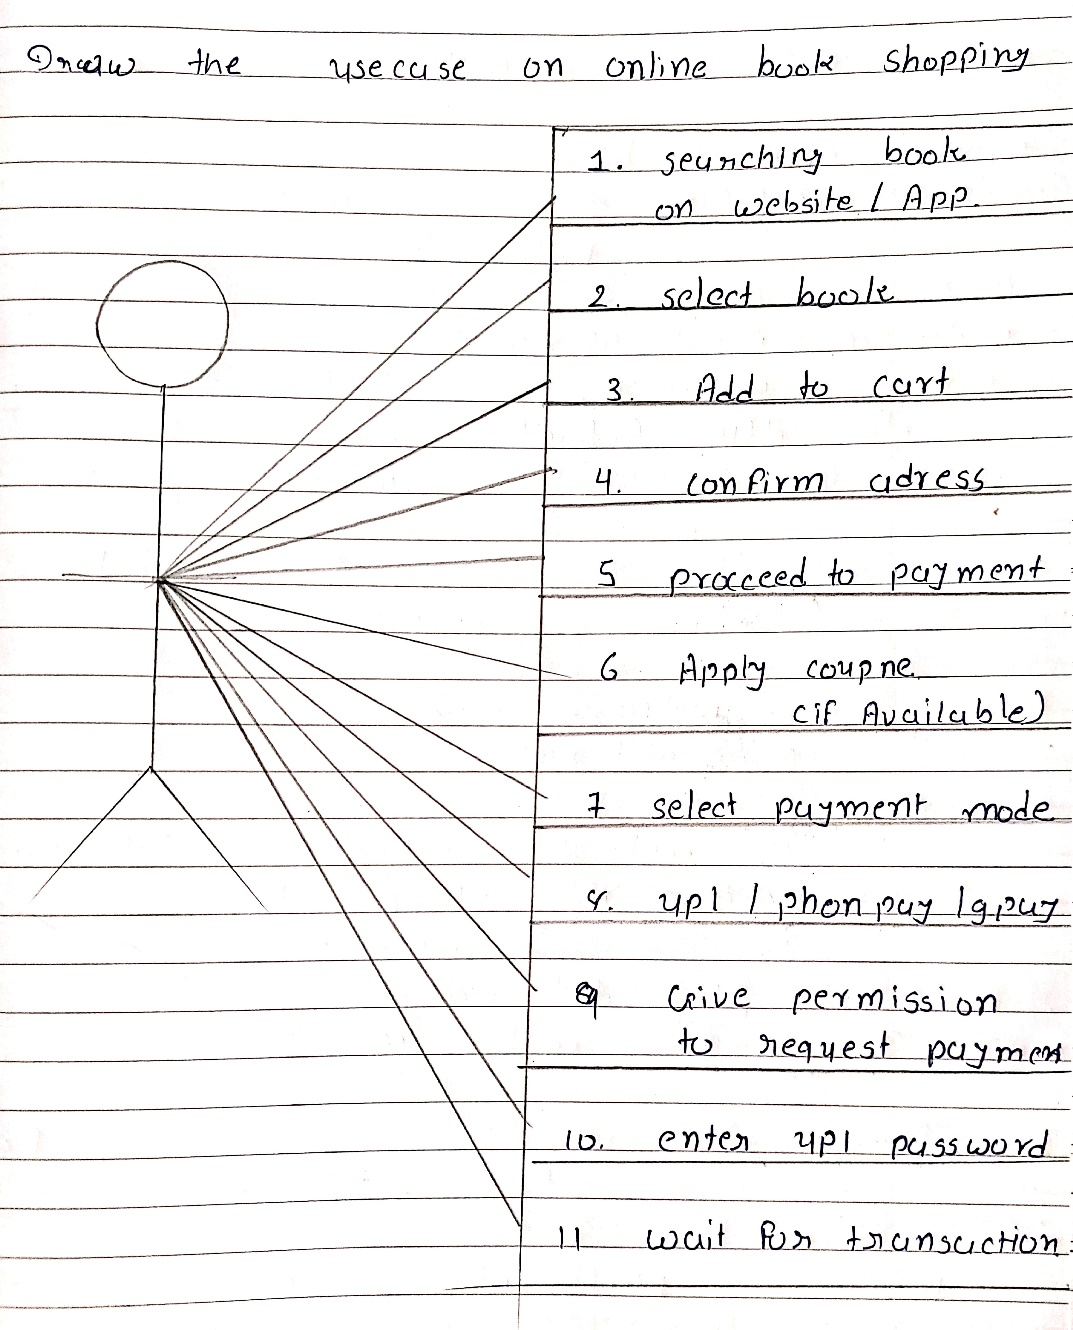 Draw the usecase on online book shopping
1. searching book
on website / App.
2. select book
3. Add to cart
4. confirm adress
5 procceed to payment
6 Apply coupne
(if Available)
7 select payment mode
8. upi / phonpay / gpay
9 Give permission
to request payment
10. enter upi password
11 wait for transaction